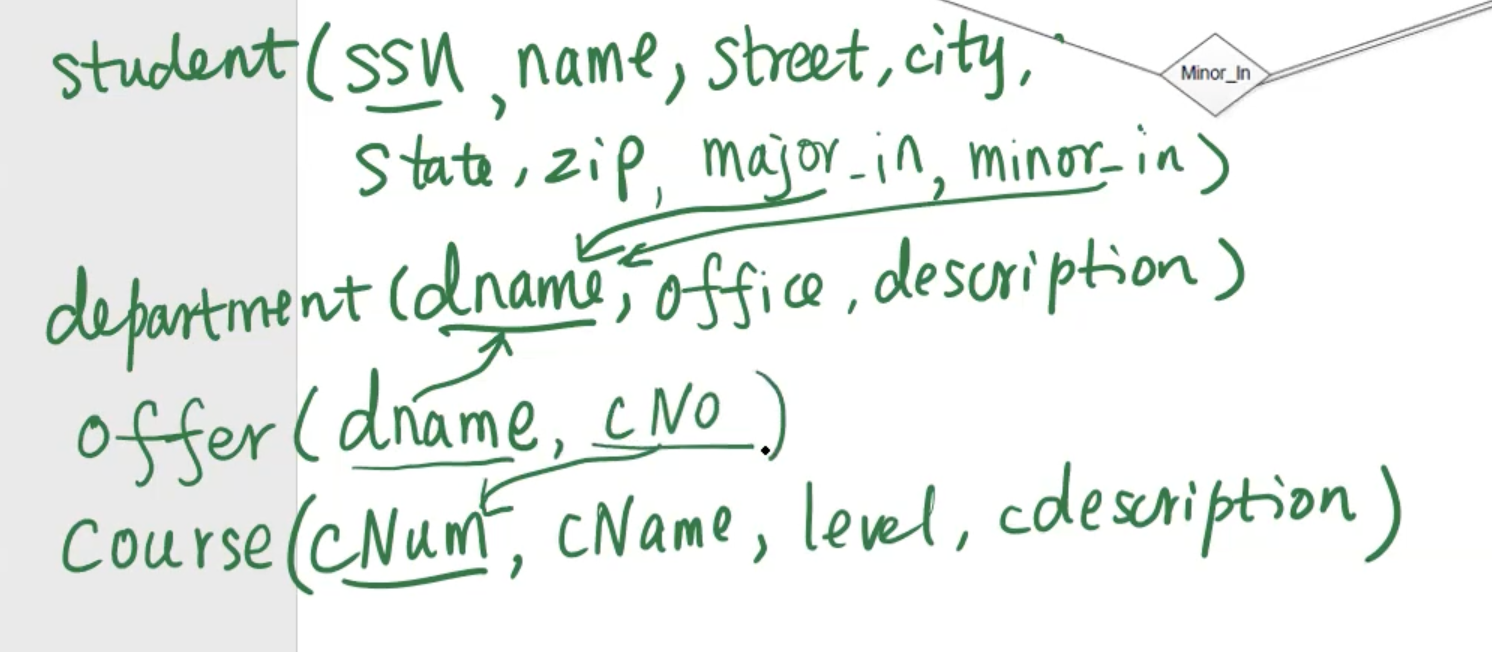 student(ssn, name, street, city,
Minor_In
state, zip, major_in, minor_in)
department(dname, office, description)
offer(dname, cNO)
Course(cNum, cName, level, cdescription)